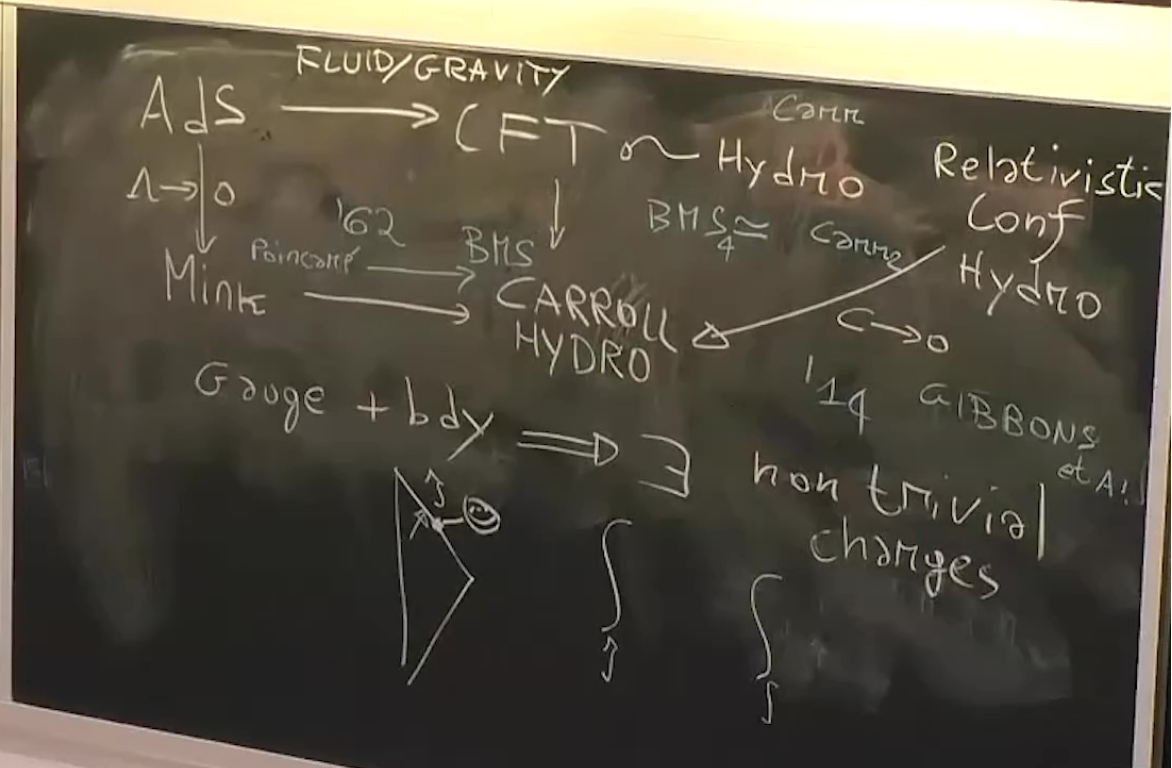 FLUID/GRAVITY
AdS → CFT ~ Hydro
Carr
Relativistic
Conf
Hydro
Λ→0
'62
Poincaré → BMS
BMS₄ ≃ Carr₃
Mink → CARROLL
HYDRO
C→0
'14 GIBBONS
et Al.
Gauge + bdy ⇒ ∃ non trivial
charges
∫ ∫